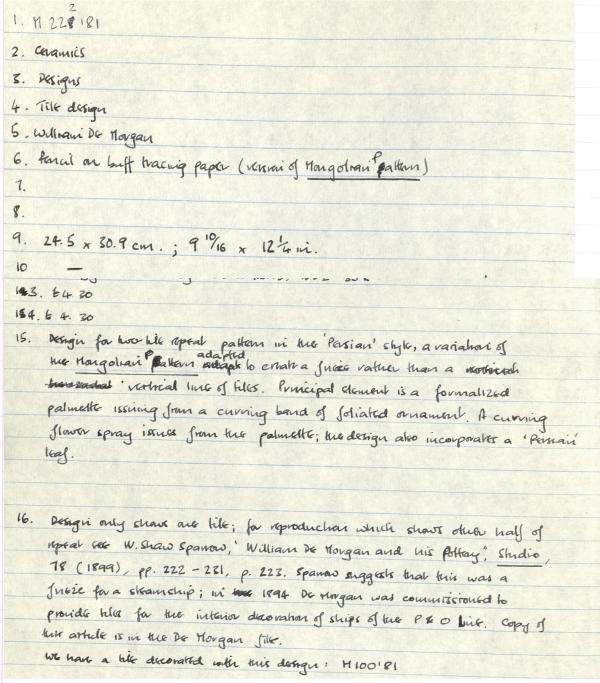 1. M 222'81
2. Ceramics
3. Designs
4. Tile design
5. William De Morgan
6. Pencil on buff tracing paper (version of Mongolian Pattern)
7.
8.
9. 24.5 x 30.9 cm. ; 9 10/16 x 12 1/4 in.
10 —
13. £4.30
14. £4.30
15. Design for two tile repeat pattern in the 'Persian' style, a variation of
the Mongolian Pattern adapted to create a frieze rather than a
vertical line of tiles. Principal element is a formalized
palmette issuing from a curving band of foliated ornament. A curving
flower spray issues from the palmette; the design also incorporates a 'Persian'
leaf.
16. Design only shows one tile; for reproduction which shows other half of
repeat see W. Shaw Sparrow, 'William De Morgan and his Pottery', Studio,
78 (1899), pp. 222 - 231, p. 223. Sparrow suggests that this was a
frieze for a steamship; in 1894 De Morgan was commissioned to
provide tiles for the interior decoration of ships of the P & O Line. Copy of
this article is in the De Morgan file.
We have a tile decorated with this design: M100'81